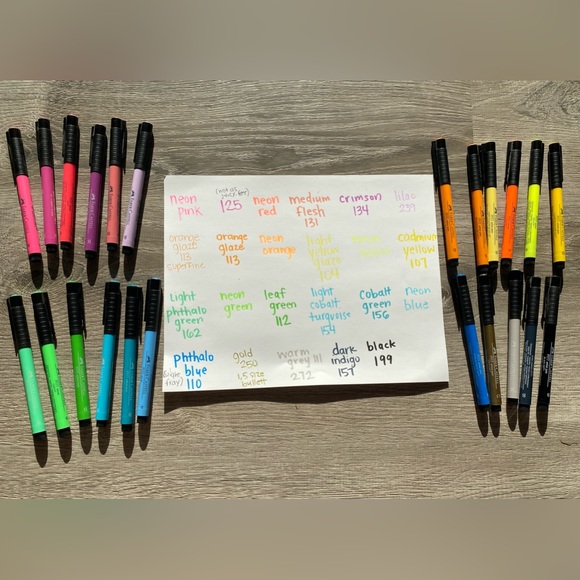 neon pink
125
neon red
medium flesh 131
crimson 134
lilac 239
orange glaze 113 superfine
orange glaze 113
neon orange
light yellow glaze 104
neon
cadmium yellow 107
light phthalo green 162
neon green
leaf green 112
light cobalt turquoise 154
cobalt green 156
neon blue
phthalo blue 110
gold 250 1.5 size bullett
warm grey III 272
dark indigo 157
black 199